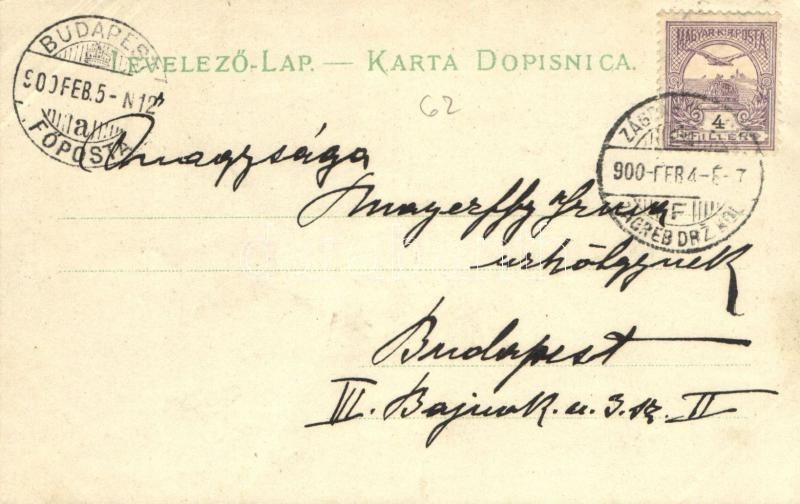 LEVELEZŐ-LAP. — KARTA DOPISNICA.
BUDAPEST
900 FEB. 5 - N 12
a
FŐPOSTA
MAGYAR KIR. POSTA
4
FILLÉR
900 FEB 4 - 7
F
ZÁGREB DRŽ. KOL.
62
Őnagysága
Mayerffy
úrhölgynek
Budapest
VI. Bajnok. u. 3. sz. II